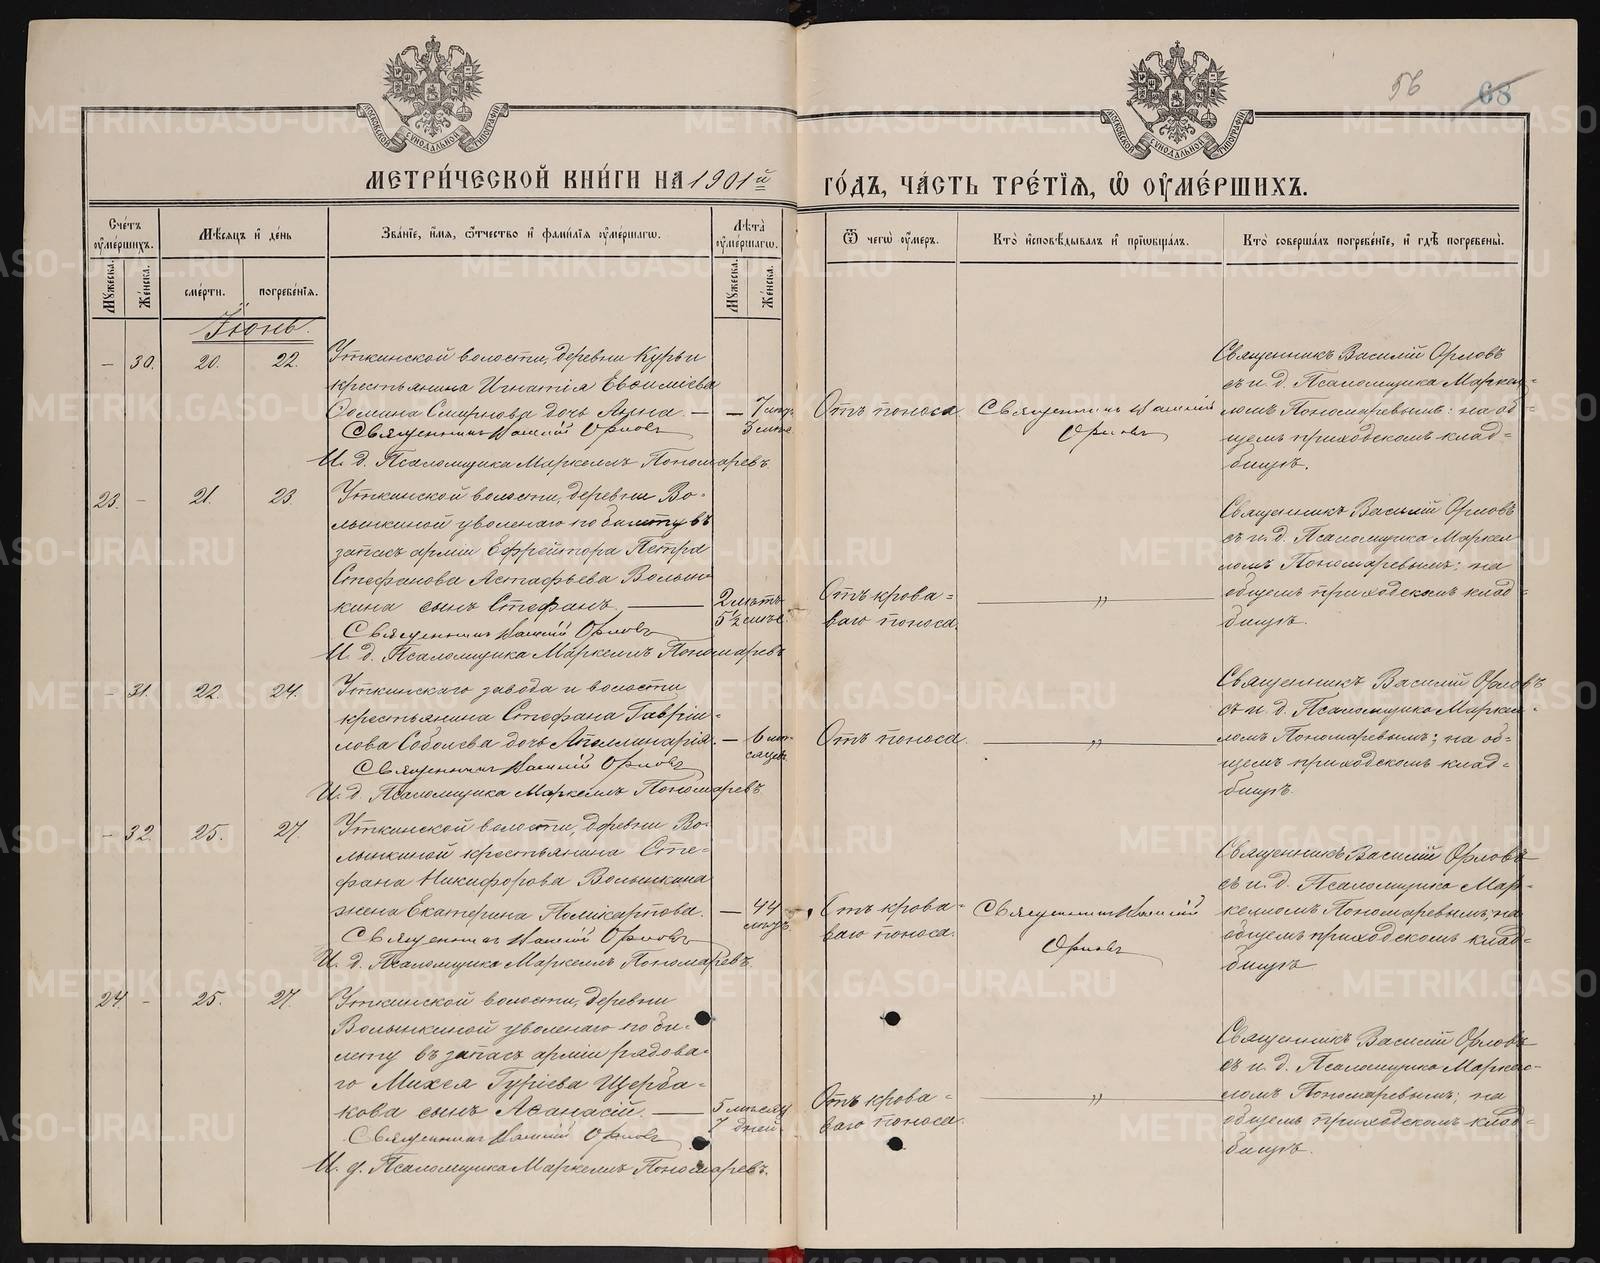 56
68
МОСКОВСКОЙ СѴНОДАЛЬНОЙ ТИПОГРАФІИ
МОСКОВСКОЙ СѴНОДАЛЬНОЙ ТИПОГРАФІИ
МЕТРИ́ЧЕСКОЙ КНИ́ГИ НА 1901й ГО́ДЪ, ЧА́СТЬ ТРЕ́ТІѦ, Ѡ ОУМЕ́РШИХЪ.
Сче́тъ оумершихъ.
Мужеска.
Же́нска.
Мѣсяцъ и де́нь
сме́рти.
погребе́нія.
Зва́ніе, и́мя, о́тчество и фами́лія оуме́ршагѡ.
Лѣта̀ оуме́ршагѡ.
Мужеска.
Же́нска.
Ѿ чегѡ̀ оу́меръ.
Кто̀ исповѣ́дывалъ и пріѡбща́лъ.
Кто̀ соверша́лъ погребе́ніе, и гдѣ̀ погребены̀.
Іюнь.
— 30. 20. 22.
Уткинской волости, деревни Курьи
крестьянина Игнатія Евѳиміева
Сомина Смирнова дочь Анна. —
Священникъ Василій Орловъ
И. д. Псаломщика Маркеллъ Пономаревъ.
—
Отъ поноса.
Священникъ Василій
Орловъ
Священникъ Василій Орловъ
съ и. д. Псаломщика Маркел=
ломъ Пономаревымъ: на об=
щемъ приходскомъ клад=
бищѣ.
23. — 21. 23.
Уткинской волости, деревни Во=
лынкиной уволенаго по билету въ
запасъ арміи Ефрейтора Петра
Стефанова Астафьева Волын=
кина сынъ Стефанъ. —
Священникъ Василій Орловъ
И. д. Псаломщика Маркеллъ Пономаревъ
2 лѣтъ
5½ мѣс.
Отъ крова=
ваго поноса.
— „ —
Священникъ Василій Орловъ
съ и. д. Псаломщика Маркел
ломъ Пономаревымъ: на
общемъ приходскомъ клад=
бищѣ.
— 31. 22. 24.
Уткинскаго завода и волости
крестьянина Стефана Гавріи=
лова Соболева дочь Аполлинарія.
Священникъ Василій Орловъ
И. д. Псаломщика Маркеллъ Пономаревъ
— 6 мѣ=
сяцев.
Отъ поноса.
— „ —
Священникъ Василій Орловъ
съ и. д. Псаломщика Маркел=
ломъ Пономаревымъ; на об=
щемъ приходскомъ клад=
бищѣ.
— 32. 25. 27.
Уткинской волости, деревни Во=
лынкиной крестьянина Сте=
фана Никифорова Волынкина
жена Екатерина Поликарпова.
Священникъ Василій Орловъ
И. д. Псаломщика Маркеллъ Пономаревъ.
— 44
лѣтъ.
Отъ крова=
ваго поноса.
Священникъ Василій
Орловъ
Священникъ Василій Орловъ
съ и. д. Псаломщика Мар=
келломъ Пономаревымъ; на
общемъ приходскомъ клад=
бищѣ
24. — 25. 27.
Уткинской волости, деревни
Волынкиной уволенаго по би=
лету въ запасъ арміи рядова=
го Михея Гуріева Щерба=
кова сынъ Аѳанасій. —
Священникъ Василій Орловъ
И. д. Псаломщика Маркеллъ Пономаревъ.
5 мѣсяц
7 дней
Отъ крова=
ваго поноса.
— „ —
Священникъ Василій Орловъ
съ и. д. Псаломщика Маркел=
ломъ Пономаревымъ; на
общемъ приходскомъ клад=
бищѣ.
METRIKI.GASO-URAL.RU